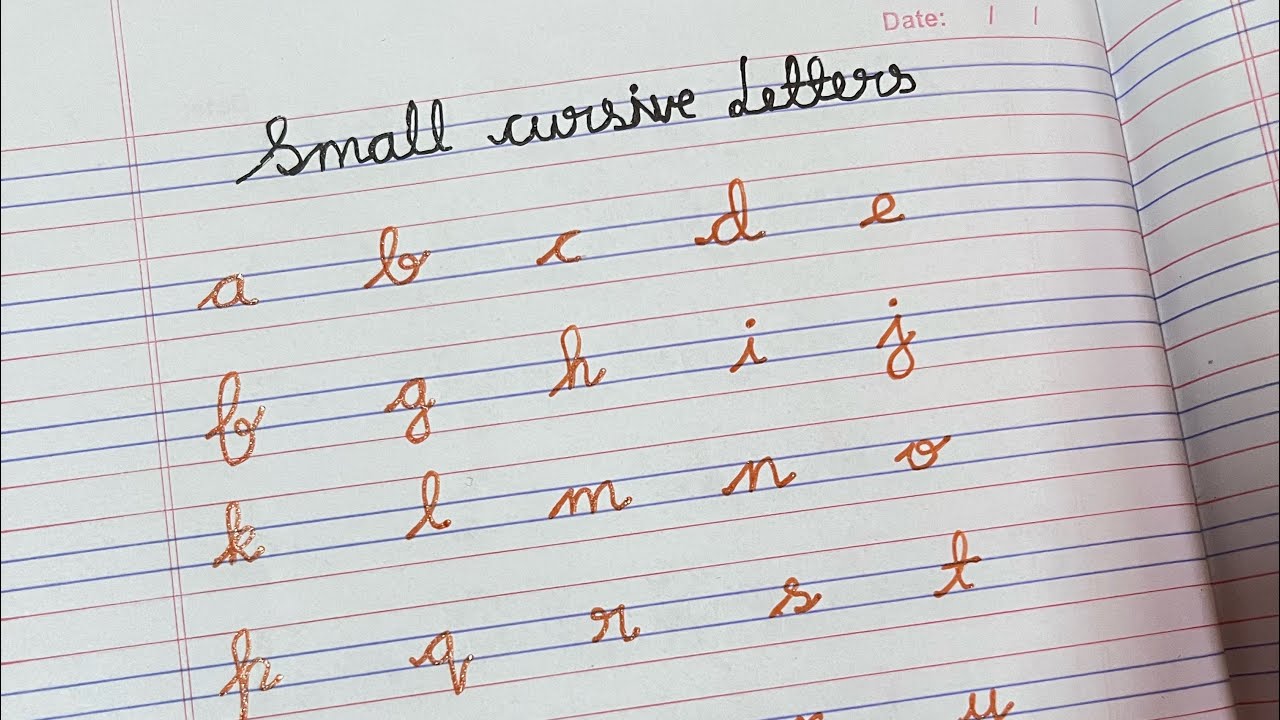 Date: / /
Small cursive Letters
a b c d e
f g h i j
k l m n o
p q r s t